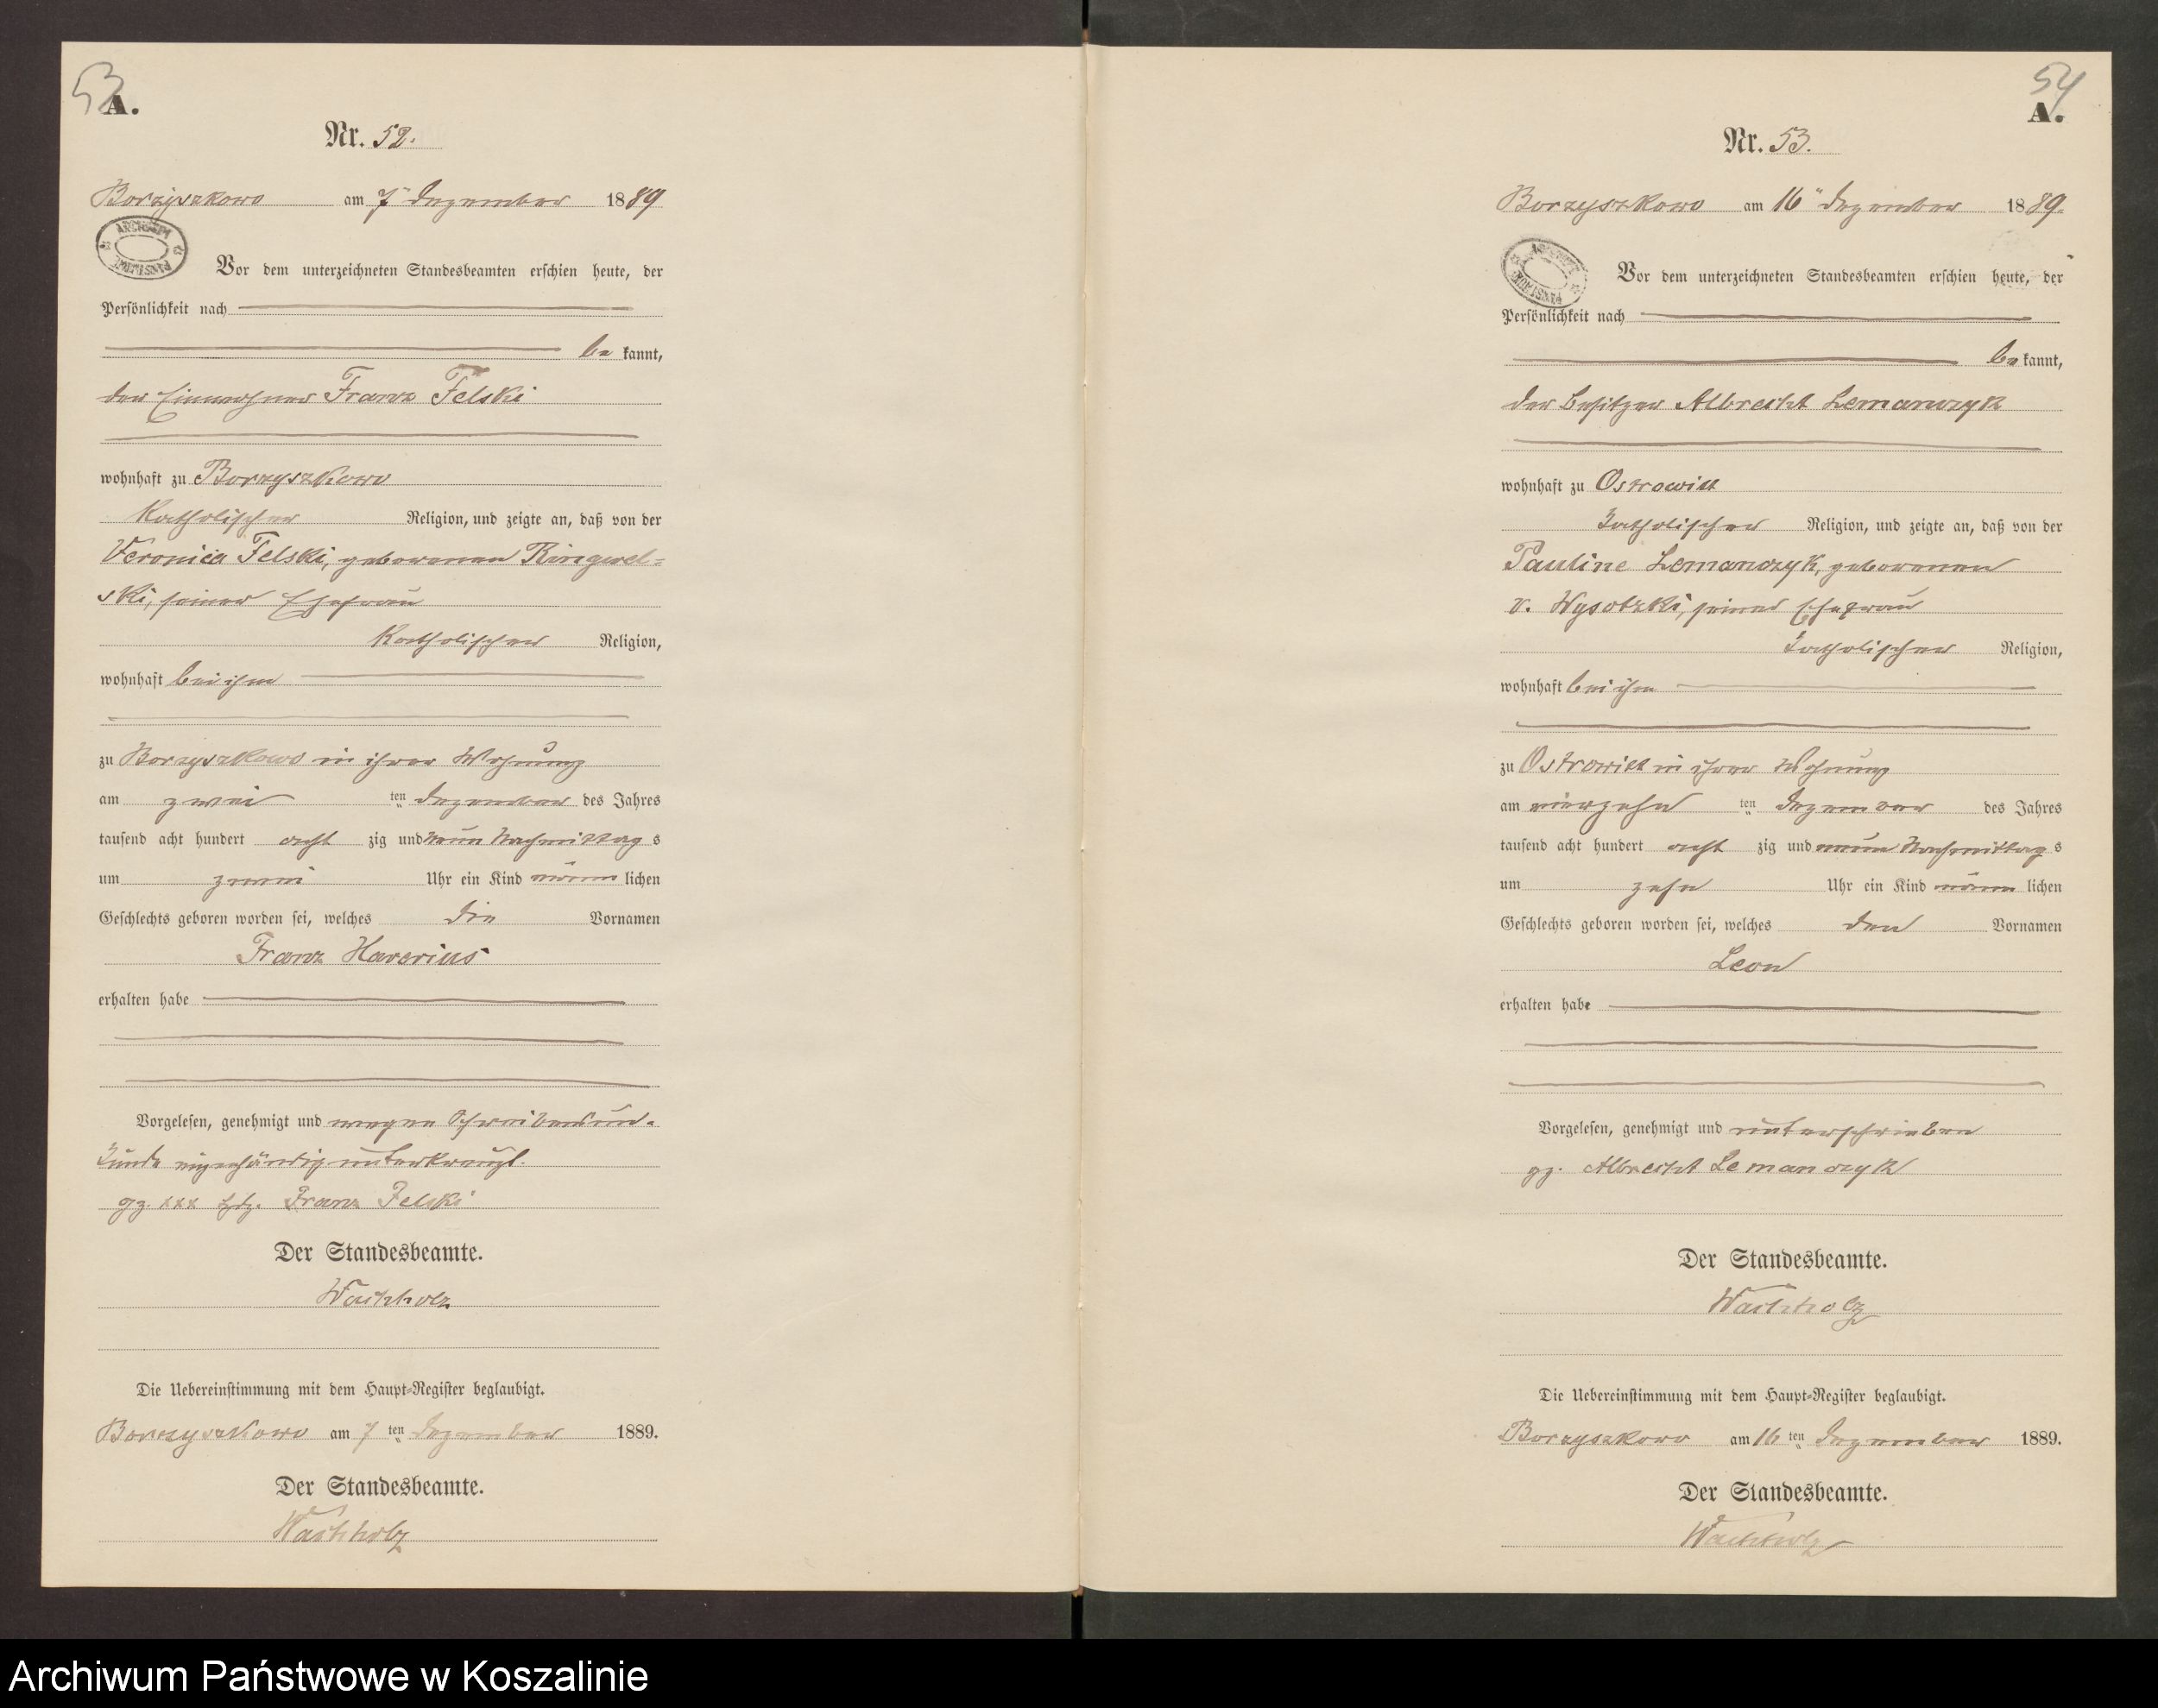 53
A.
Nr. 52.
Borzyszkowo am 7ten Dezember 1889
Vor dem unterzeichneten Standesbeamten erschien heute, der
Persönlichkeit nach
be kannt,
der Einwohner Franz Felski
wohnhaft zu Borzyszkowo
katholischer Religion, und zeigte an, daß von der
Veronica Felski, geborenen Ringwel=
ski, seiner Ehefrau
katholischer Religion,
wohnhaft bei ihm
zu Borzyszkowo in ihrer Wohnung
am zwei ten Dezember des Jahres
tausend acht hundert acht zig und neun Nachmittag s
um zwei Uhr ein Kind männ lichen
Geschlechts geboren worden sei, welches die Vornamen
Franz Xaverius
erhalten habe
Vorgelesen, genehmigt und wegen Schreibensun-
kunde eigenhändig unterkreuzt.
gz. xxx Hdz. Franz Felski
Der Standesbeamte.
Wachholz
Die Uebereinstimmung mit dem Haupt=Register beglaubigt.
Borzyszkowo am 7 ten Dezember 1889.
Der Standesbeamte.
Wachholz
54
A.
Nr. 53.
Borzyszkowo am 16ten Dezember 1889.
Vor dem unterzeichneten Standesbeamten erschien heute, der
Persönlichkeit nach
be kannt,
der Besitzer Albrecht Lemanczyk
wohnhaft zu Ostrowitt
katholischer Religion, und zeigte an, daß von der
Pauline Lemanczyk, geborenen
v. Wysotzki, seiner Ehefrau
katholischer Religion,
wohnhaft bei ihm
zu Ostrowitt in ihrer Wohnung
am vierzehn ten Dezember des Jahres
tausend acht hundert acht zig und neun Nachmittag s
um zehn Uhr ein Kind männ lichen
Geschlechts geboren worden sei, welches den Vornamen
Leon
erhalten habe
Vorgelesen, genehmigt und unterschrieben
gz. Albrecht Lemanczyk
Der Standesbeamte.
Wachholz
Die Uebereinstimmung mit dem Haupt=Register beglaubigt.
Borzyszkowo am 16 ten Dezember 1889.
Der Standesbeamte.
Wachholz
Archiwum Państwowe w Koszalinie